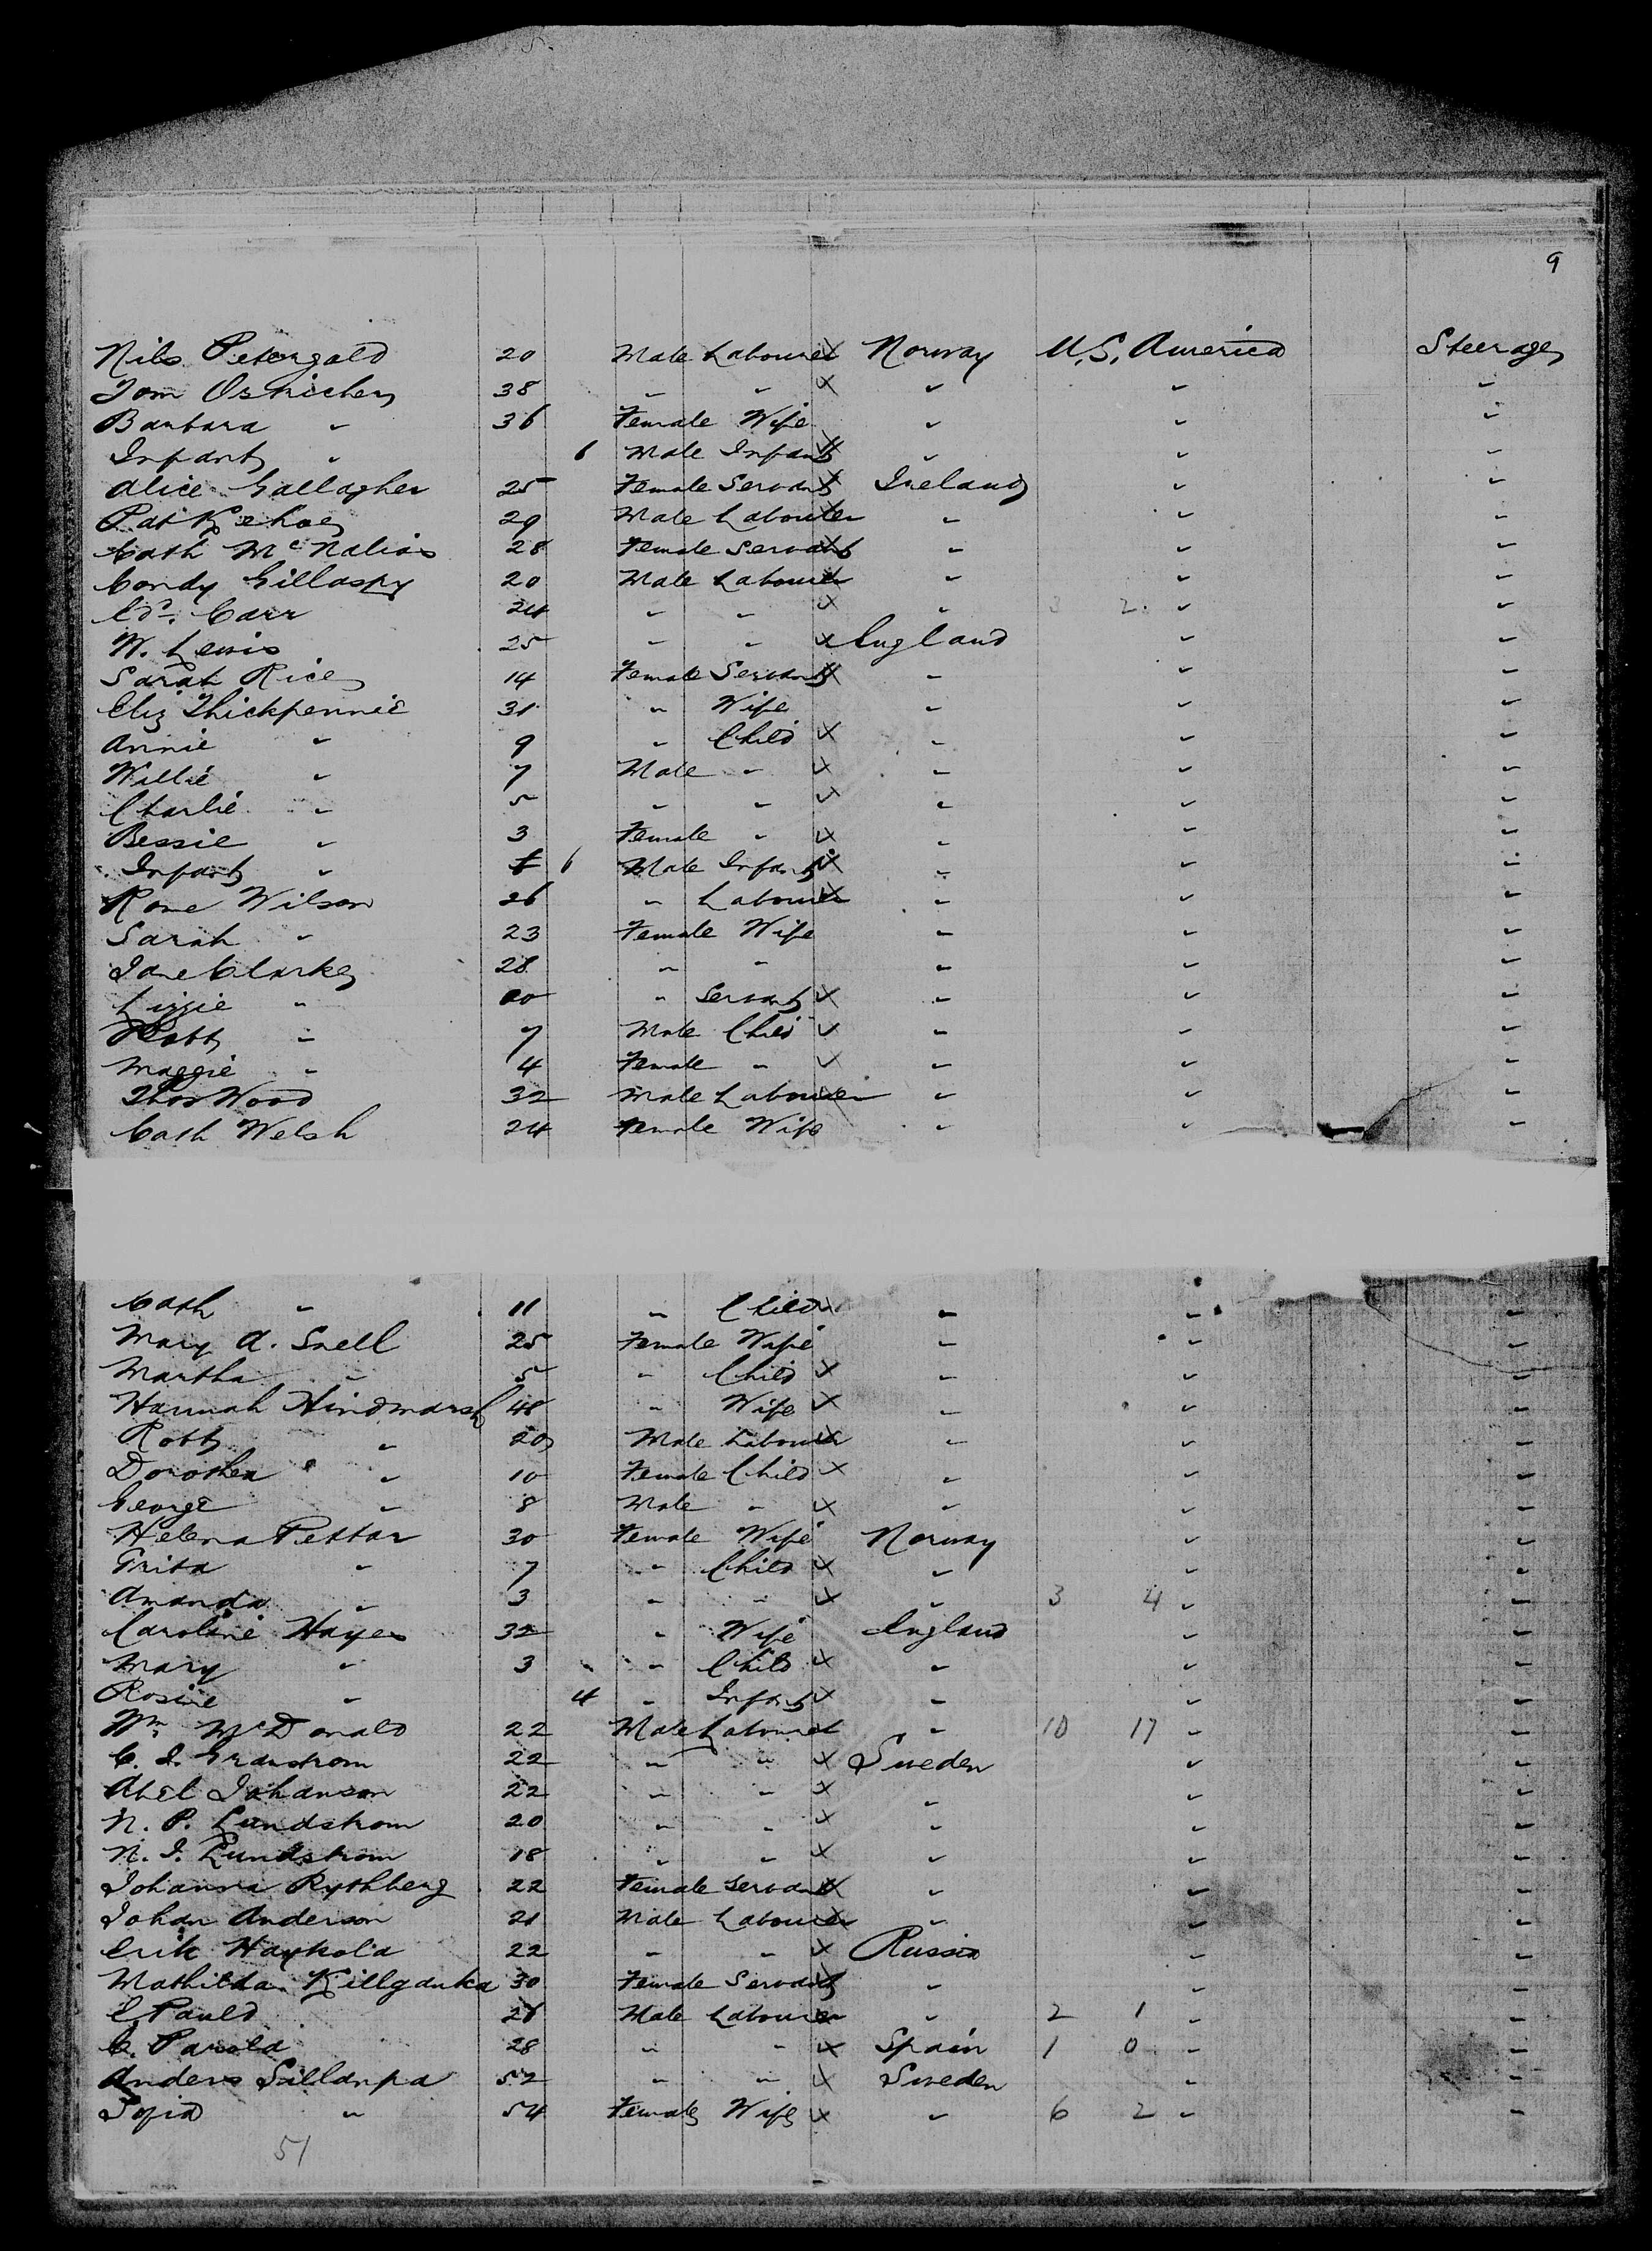 9
Nils Petengald 20 Male Labourer Norway U.S. America Steerage
Tom Ostricher 38 " " " " "
Barbara " 36 Female Wife " " "
Infant " 6 Male Infant " " "
Alice Gallagher 25 Female Servant Ireland " "
Pat Kehoe 29 Male Labourer " " "
Cath 28 Female Servant " " "
Condy Gillaspy 20 Male Labourer " " "
Ed. Carr 24 " " " 3 2 " "
W. Lewis 25 " " England " "
Sarah Rice 14 Female Servant " " "
Eliz Thickpennie 31 " Wife " " "
Annie " 9 " Child " " "
Willie " 7 Male " " " "
Charlie " 5 " " " " "
Bessie " 3 Female " " " "
Infant " 6 Male Infant " " "
Wilson 26 " Labourer " " "
Sarah " 23 Female Wife " " "
Jane Clarke 28 " " " " "
Lizzie " " Servant " " "
Robt " 7 Male Child " " "
Maggie " 4 Female " " " "
Thos Wood 32 Male Labourer " " "
Cath Welsh 24 Female Wife " " "
Cath " 11 " Child " " "
Mary A. Snell 25 Female Wife " " "
Martha " 5 " Child " " "
Hannah Hindmarsh 48 " Wife " " "
Robt " 20 Male Labourer " " "
Dorothea " 10 Female Child " " "
George " 8 Male " " " "
Helena Pettar 30 Female Wife Norway " "
" 7 " Child " " "
Amanda " 3 " " " 3 4 " "
Caroline Hayes 32 " Wife England " "
Mary " 3 " Child " " "
Rosine " 4 " Infant " " "
Wm McDonald 22 Male Labourer " 10 17 " "
C. J. Granstrom 22 " " Sweden " "
Abel Johanson 22 " " " " "
N. P. Lundstrom 20 " " " " "
N. J. Lundstrom 18 " " " " "
Johanna Rythberg 22 Female Servant " " "
Johan Anderson 21 Male Labourer " " "
Erik Haykola 22 " " Russia " "
Mathilda Killganka 30 Female Servant " " "
E Pauld 26 Male Labourer " 2 1 " "
C. Parola 28 " " Spain 1 0 " "
Anders Sillanpa 52 " " Sweden " "
Sofia " 54 Female Wife " 6 2 " "
51